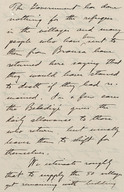 The Government has done
nothing for the refugees
in the villages and many
people who have fled to
them from Broosa have
returned here saying that
they would have starved
to death if they had re-
mained. For a few days
the Beledieh gives the
daily allowance to those
who return but usually
leave them to shift for
themselves.
We estimate roughly
that to supply the 50 villages
yet remaining with bedding